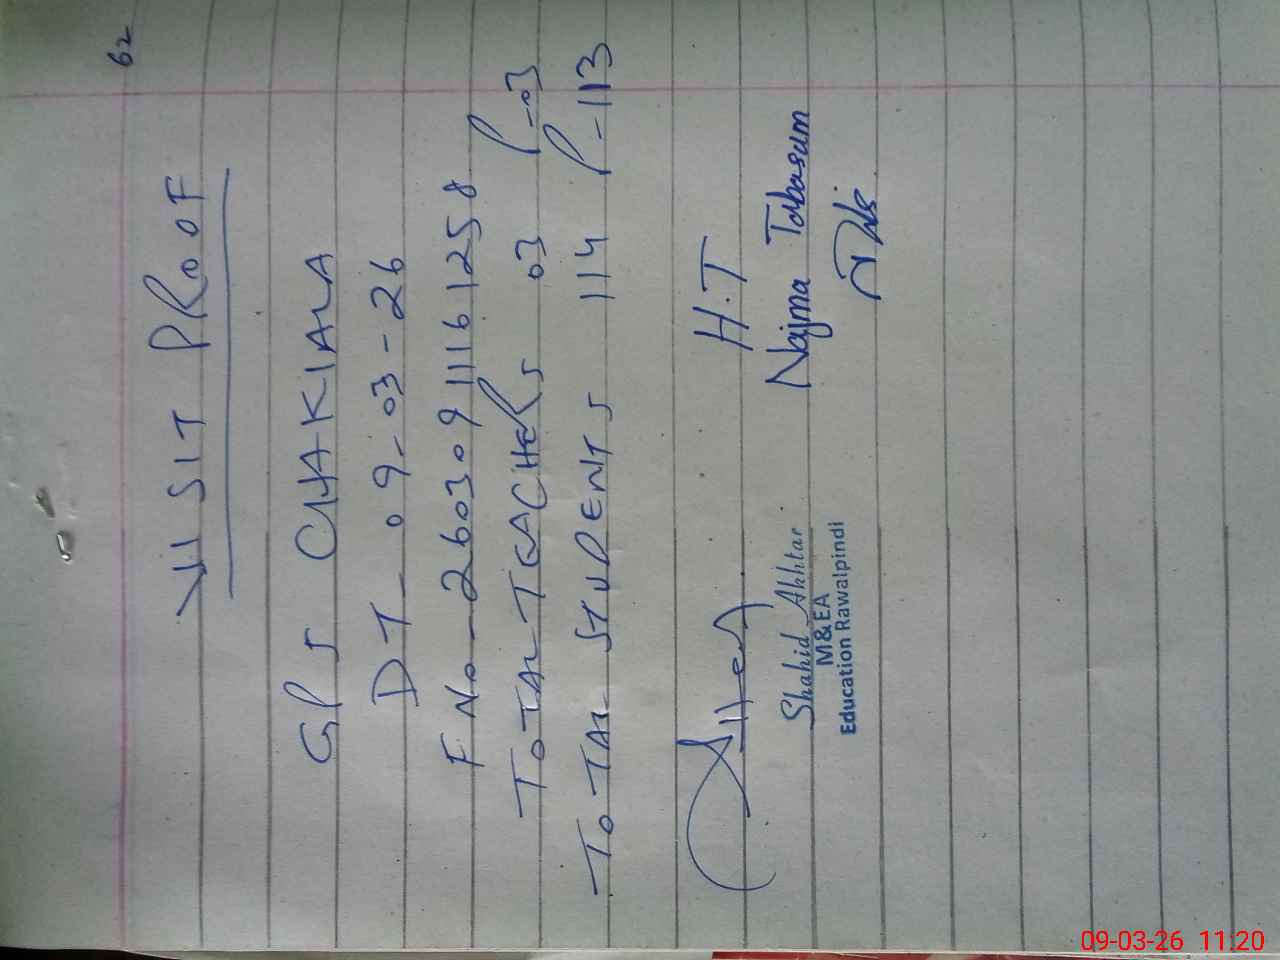 62
VISIT PROOF
GPS CHAKIALA
DT - 09-03-26
F No - 26030911161258
TOTAL TEACHERS 03 P-03
TOTAL STUDENTS 114 P-113
H.T
Shahid Akhtar
M&EA
Education Rawalpindi
Najma Tabasum
09-03-26 11:20